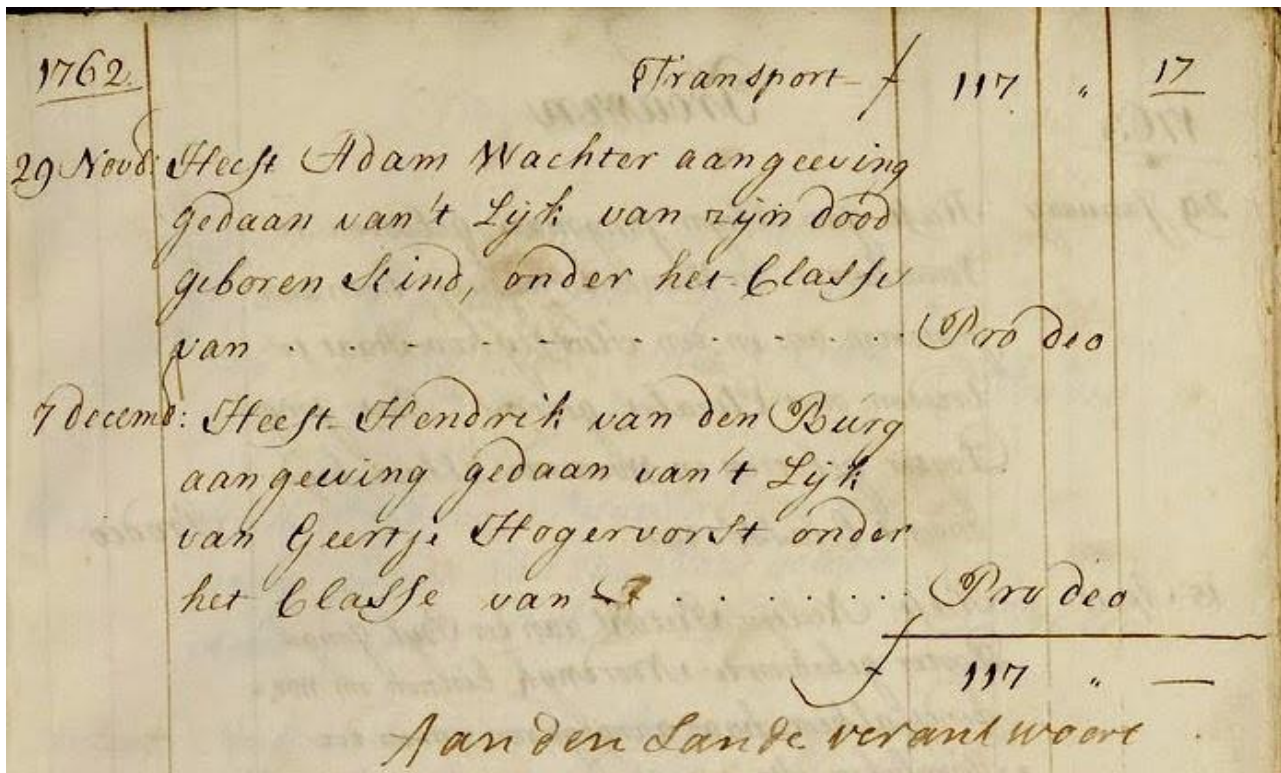 1762. Transport f 117 " 17
29 Novb: Heeft Adam Wachter aangeeving
gedaan van't Lijk van zijn dood
geboren Kind, onder het Classe
van . . . . . . . . . . . . Pro deo
7 decemb: Heeft Hendrik van den Burg
aangeeving gedaan van't Lijk
van Geertje Hogervorst onder
het Classe van . . . . . . . . Pro deo
f 117 " —
Aan den Lande verantwoort